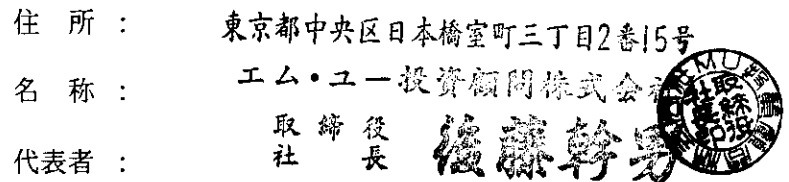 住 所 : 東京都中央区日本橋室町三丁目2番15号
名 称 : エム・ユー投資顧問株式会社
代表者 : 取締役社長 後藤幹男